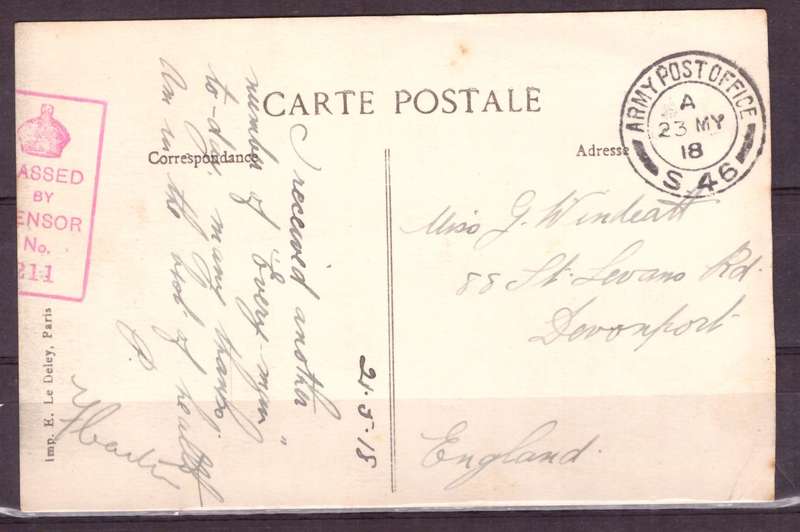 CARTE POSTALE
Correspondance
Adresse
ARMY POST OFFICE
A
23 MY
18
S 46
PASSED
BY
CENSOR
No.
211
21-5-18
I received another
number of "Every-man"
to-day. many thanks.
Am in the best of health
Miss G. Windeatt
88 St. Levans Rd.
Devonport
England.
Imp. E. Le Deley, Paris